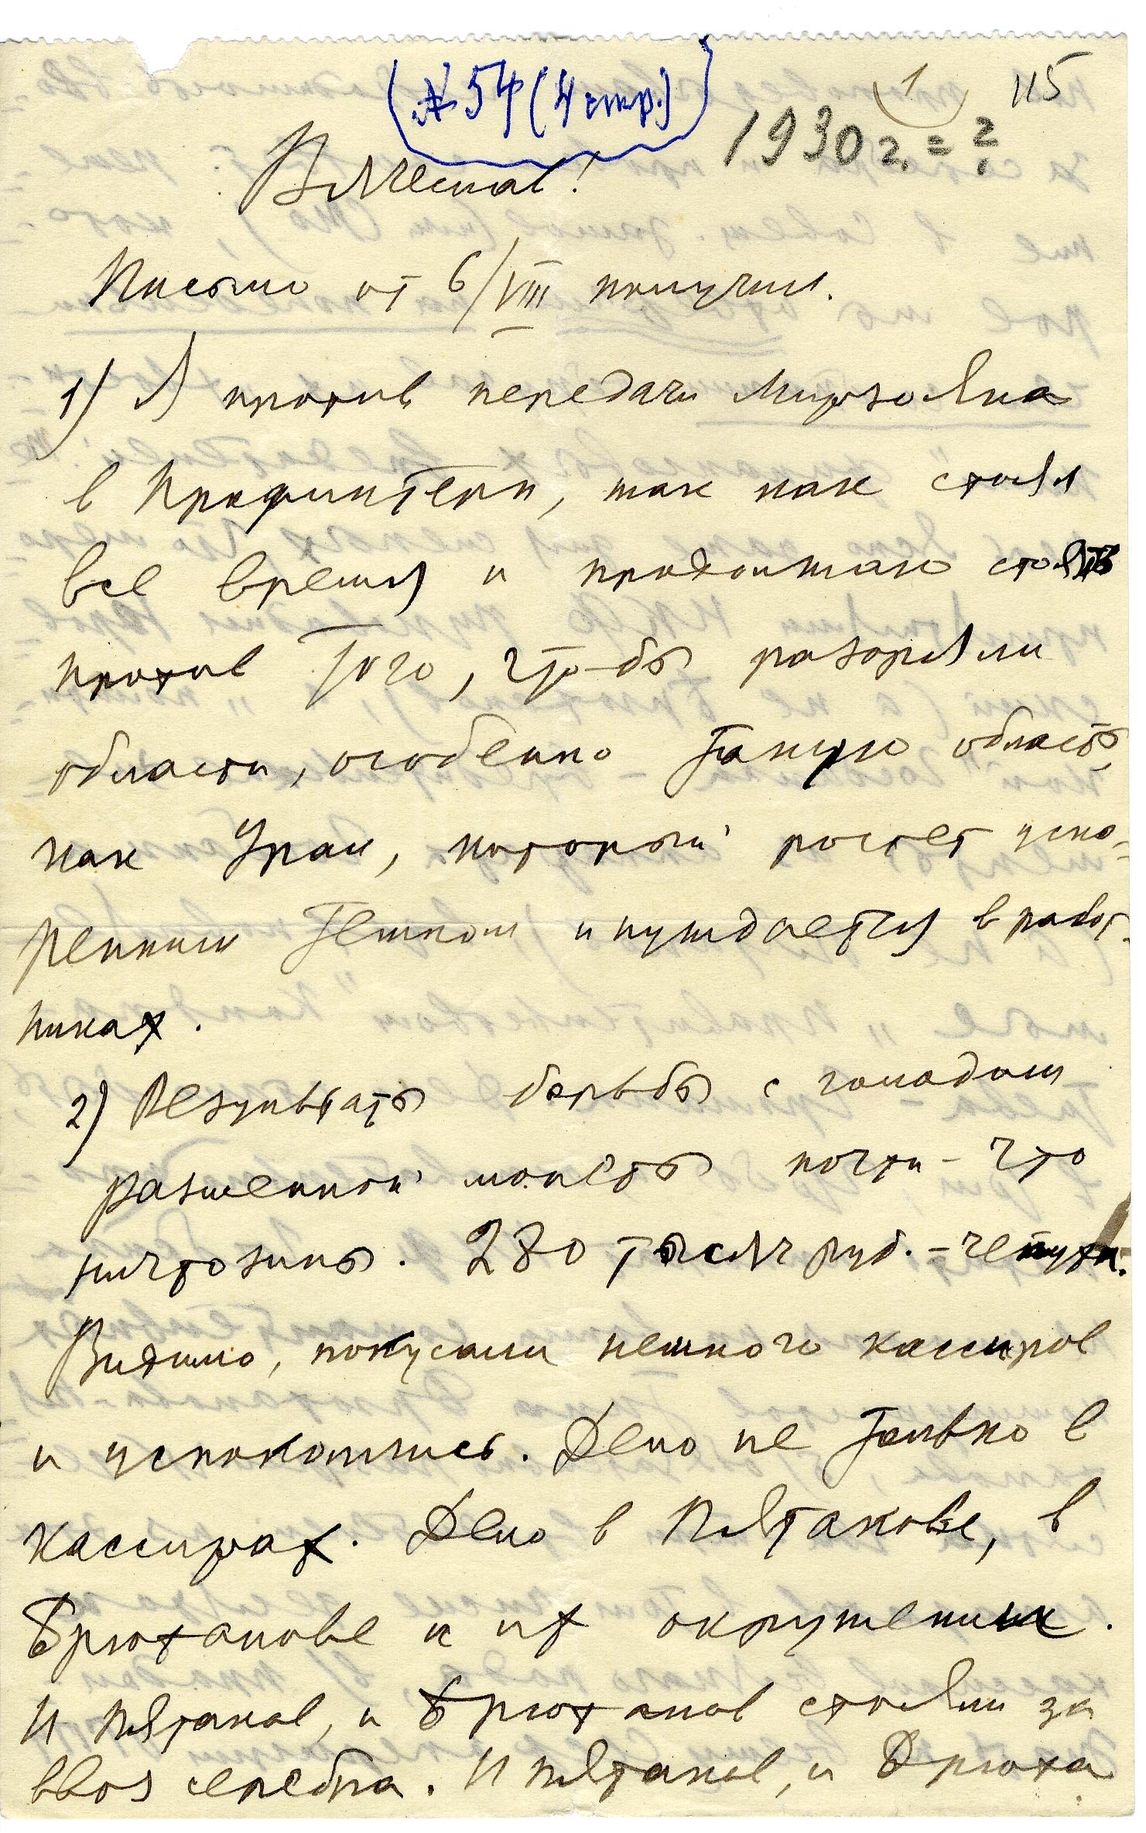 (№ 54 (4 стр.)
1
115
1930 г. = ?
Вячеслав!
Письмо от 6/VIII получил.
1) Я против передачи Мирзояна
в Профинтерн, так как стоял
все время и продолжаю стоять
против того, что-бы разоряли
области, особенно такую область,
как Урал, который растет уско-
ренным темпом и нуждается в работ-
никах.
2) Результаты борьбы с голодом
разменной монеты почти-что
ничтожны. 280 тысяч руб. – чепуха.
Видимо, покусали немного кассиров
и успокоились. Дело не только в
кассирах. Дело в Пятакове, в
Брюханове и их окружении.
И Пятаков, и Брюханов стояли за
ввоз серебра. И Пятаков, и Брюха